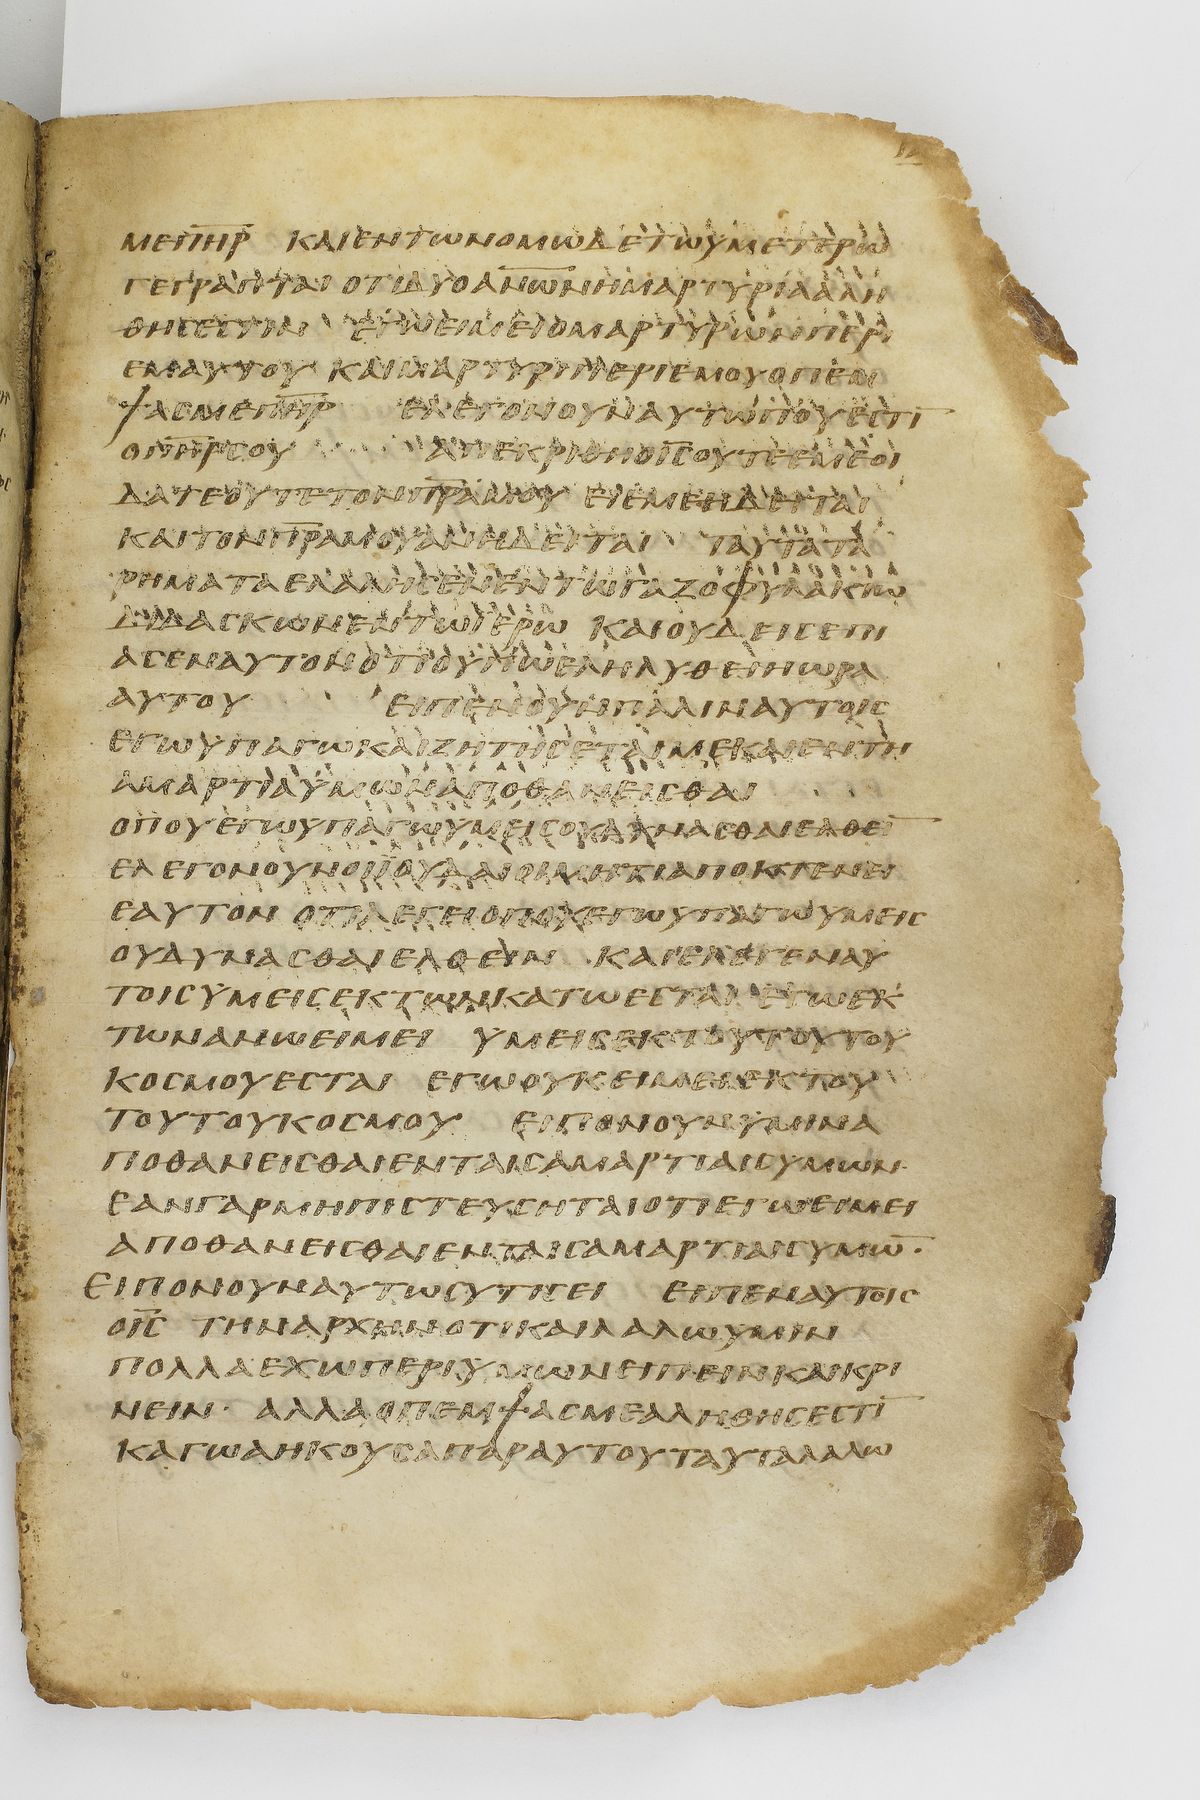 ΜΕΠΗΡ ΚΑΙΕΝΤΩΝΟΜΩΔΕΤΩΥΜΕΤΕΡΩ
ΓΕΓΡΑΠΤΑΙ ΟΤΙΔΥΟΑΝΩΝΗΜΑΡΤΥΡΙΑΑΛΗ
ΘΗΣΕΣΤΙΝ ΕΓΩΕΙΜΕΙΟΜΑΡΤΥΡΩΝΠΕΡΙ
ΕΜΑΥΤΟΥ ΚΑΙΜΑΡΤΥΡΙΠΕΡΙΕΜΟΥΟΠΕΜ
ΨΑΣΜΕΠΗΡ ΕΛΕΓΟΝΟΥΝΑΥΤΩΠΟΥΕΣΤΙ
ΟΠΗΡΣΟΥ ΑΠΕΚΡΙΘΗΟΙΣΟΥΤΕΕΜΕΟΙ
ΔΑΤΕΟΥΤΕΤΟΝΠΡΑΜΟΥ ΕΙΕΜΕΗΔΕΙΤΑΙ
ΚΑΙΤΟΝΠΡΑΜΟΥΑΝΗΔΕΙΤΑΙ ΤΑΥΤΑΤΑ
ΡΗΜΑΤΑΕΛΑΛΗΣΕΝΕΝΤΩΓΑΖΟΦΥΛΑΚΙΩ
ΔΙΔΑΣΚΩΝΕΝΤΩΙΕΡΩ ΚΑΙΟΥΔΕΙΣΕΠΙ
ΑΣΕΝΑΥΤΟΝΟΤΙΟΥΠΩΕΛΗΛΥΘΕΙΗΩΡΑ
ΑΥΤΟΥ ΕΙΠΕΝΟΥΝΠΑΛΙΝΑΥΤΟΙΣ
ΕΓΩΥΠΑΓΩΚΑΙΖΗΤΗΣΕΤΑΙΜΕΚΑΙΕΝΤΗ
ΑΜΑΡΤΙΑΥΜΩΝΑΠΟΘΑΝΕΙΣΘΑΙ
ΟΠΟΥΕΓΩΥΠΑΓΩΥΜΕΙΣΟΥΔΥΝΑΣΘΑΙΕΛΘΕΙ
ΕΛΕΓΟΝΟΥΝΟΙΙΟΥΔΑΙΟΙΜΗΤΙΑΠΟΚΤΕΝΕΙ
ΕΑΥΤΟΝ ΟΤΙΛΕΓΕΙΟΠΟΥΕΓΩΥΠΑΓΩΥΜΕΙΣ
ΟΥΔΥΝΑΣΘΑΙΕΛΘΕΙΝ ΚΑΙΕΛΕΓΕΝΑΥ
ΤΟΙΣΥΜΕΙΣΕΚΤΩΝΚΑΤΩΕΣΤΑΙ ΕΓΩΕΚ
ΤΩΝΑΝΩΕΙΜΕΙ ΥΜΕΙΣΕΚΤΟΥΤΟΥΤΟΥ
ΚΟΣΜΟΥΕΣΤΑΙ ΕΓΩΟΥΚΕΙΜΕΙΕΚΤΟΥ
ΤΟΥΤΟΥΚΟΣΜΟΥ ΕΙΠΟΝΟΥΝΥΜΙΝΑ
ΠΟΘΑΝΕΙΣΘΑΙΕΝΤΑΙΣΑΜΑΡΤΙΑΙΣΥΜΩΝ·
ΕΑΝΓΑΡΜΗΠΙΣΤΕΥΣΗΤΑΙΟΤΙΕΓΩΕΙΜΕΙ
ΑΠΟΘΑΝΕΙΣΘΑΙΕΝΤΑΙΣΑΜΑΡΤΙΑΙΣΥΜΩ·
ΕΙΠΟΝΟΥΝΑΥΤΩΣΥΤΙΣΕΙ ΕΙΠΕΝΑΥΤΟΙΣ
ΟΙΣ ΤΗΝΑΡΧΗΝΟΤΙΚΑΙΛΑΛΩΥΜΙΝ
ΠΟΛΛΑΕΧΩΠΕΡΙΥΜΩΝΕΙΠΕΙΝΚΑΙΚΡΙ
ΝΕΙΝ· ΑΛΛΑΟΠΕΜΨΑΣΜΕΑΛΗΘΗΣΕΣΤΙ
ΚΑΓΩΑΗΚΟΥΣΑΠΑΡΑΥΤΟΥΤΑΥΤΑΛΑΛΩ